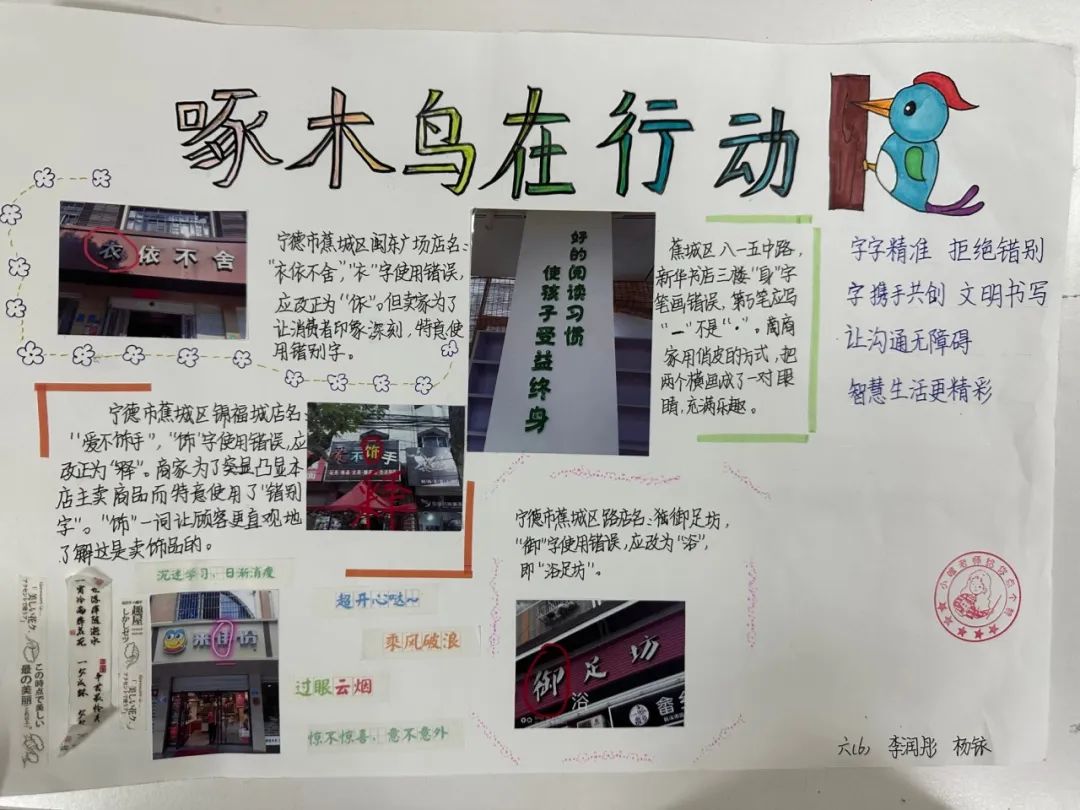 啄木鸟在行动
衣依不舍
宁德市蕉城区闽东广场店名:
"衣依不舍","衣"字使用错误,
应改正为"依"。但卖家为了
让消费者印象深刻,特意使
用错别字。
好的阅读习惯
使孩子受益终身
蕉城区八一五中路,
新华书店三楼"身"字
笔画错误,第5笔应写
"一"不是"·"。商
家用俏皮的方式,把
两个横画成了一对眼
睛,充满乐趣。
字字精准 拒绝错别
字携手共创 文明书写
让沟通无障碍
智慧生活更精彩
宁德市蕉城区锦福城店名:
"爱不饰手","饰"字使用错误,应
改正为"释"。商家为了突显凸显本
店主卖商品而特意使用了"错别
字"。"饰"一词让顾客更直观地
了解这是卖饰品的。
爱不饰手
宁德市蕉城区路店名:御足坊,
"御"字使用错误,应改为"浴",
即"浴足坊"。
御足坊
浴
沉迷学习,日渐消瘦
超开心哒~
乘风破浪
过眼云烟
惊不惊喜,意不意外
趣屋
この時点で美しい
最の美麗
六(6) 李润彤 杨铱